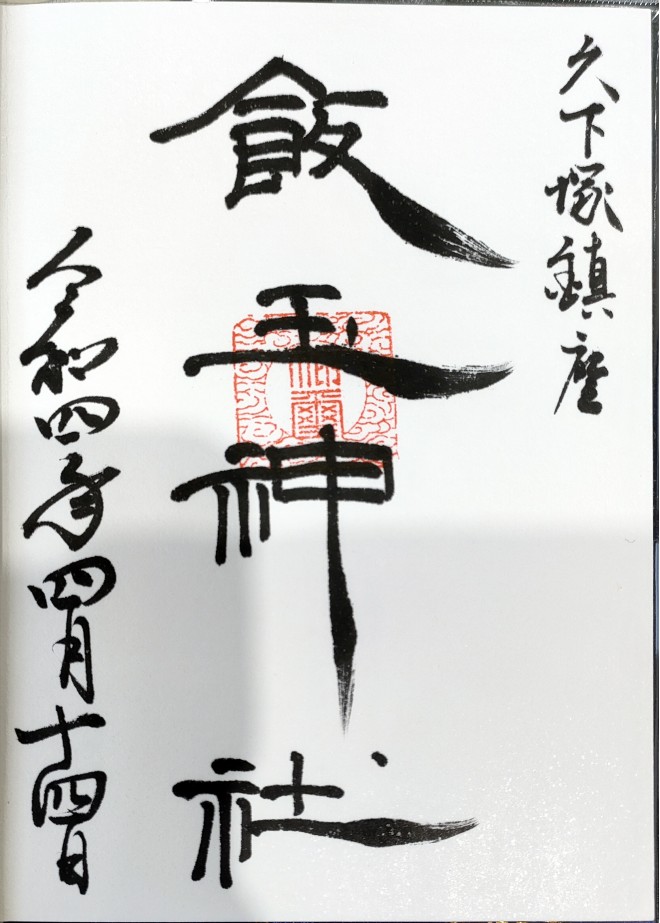 久下塚鎮座
飯玉神社
令和四年四月十四日